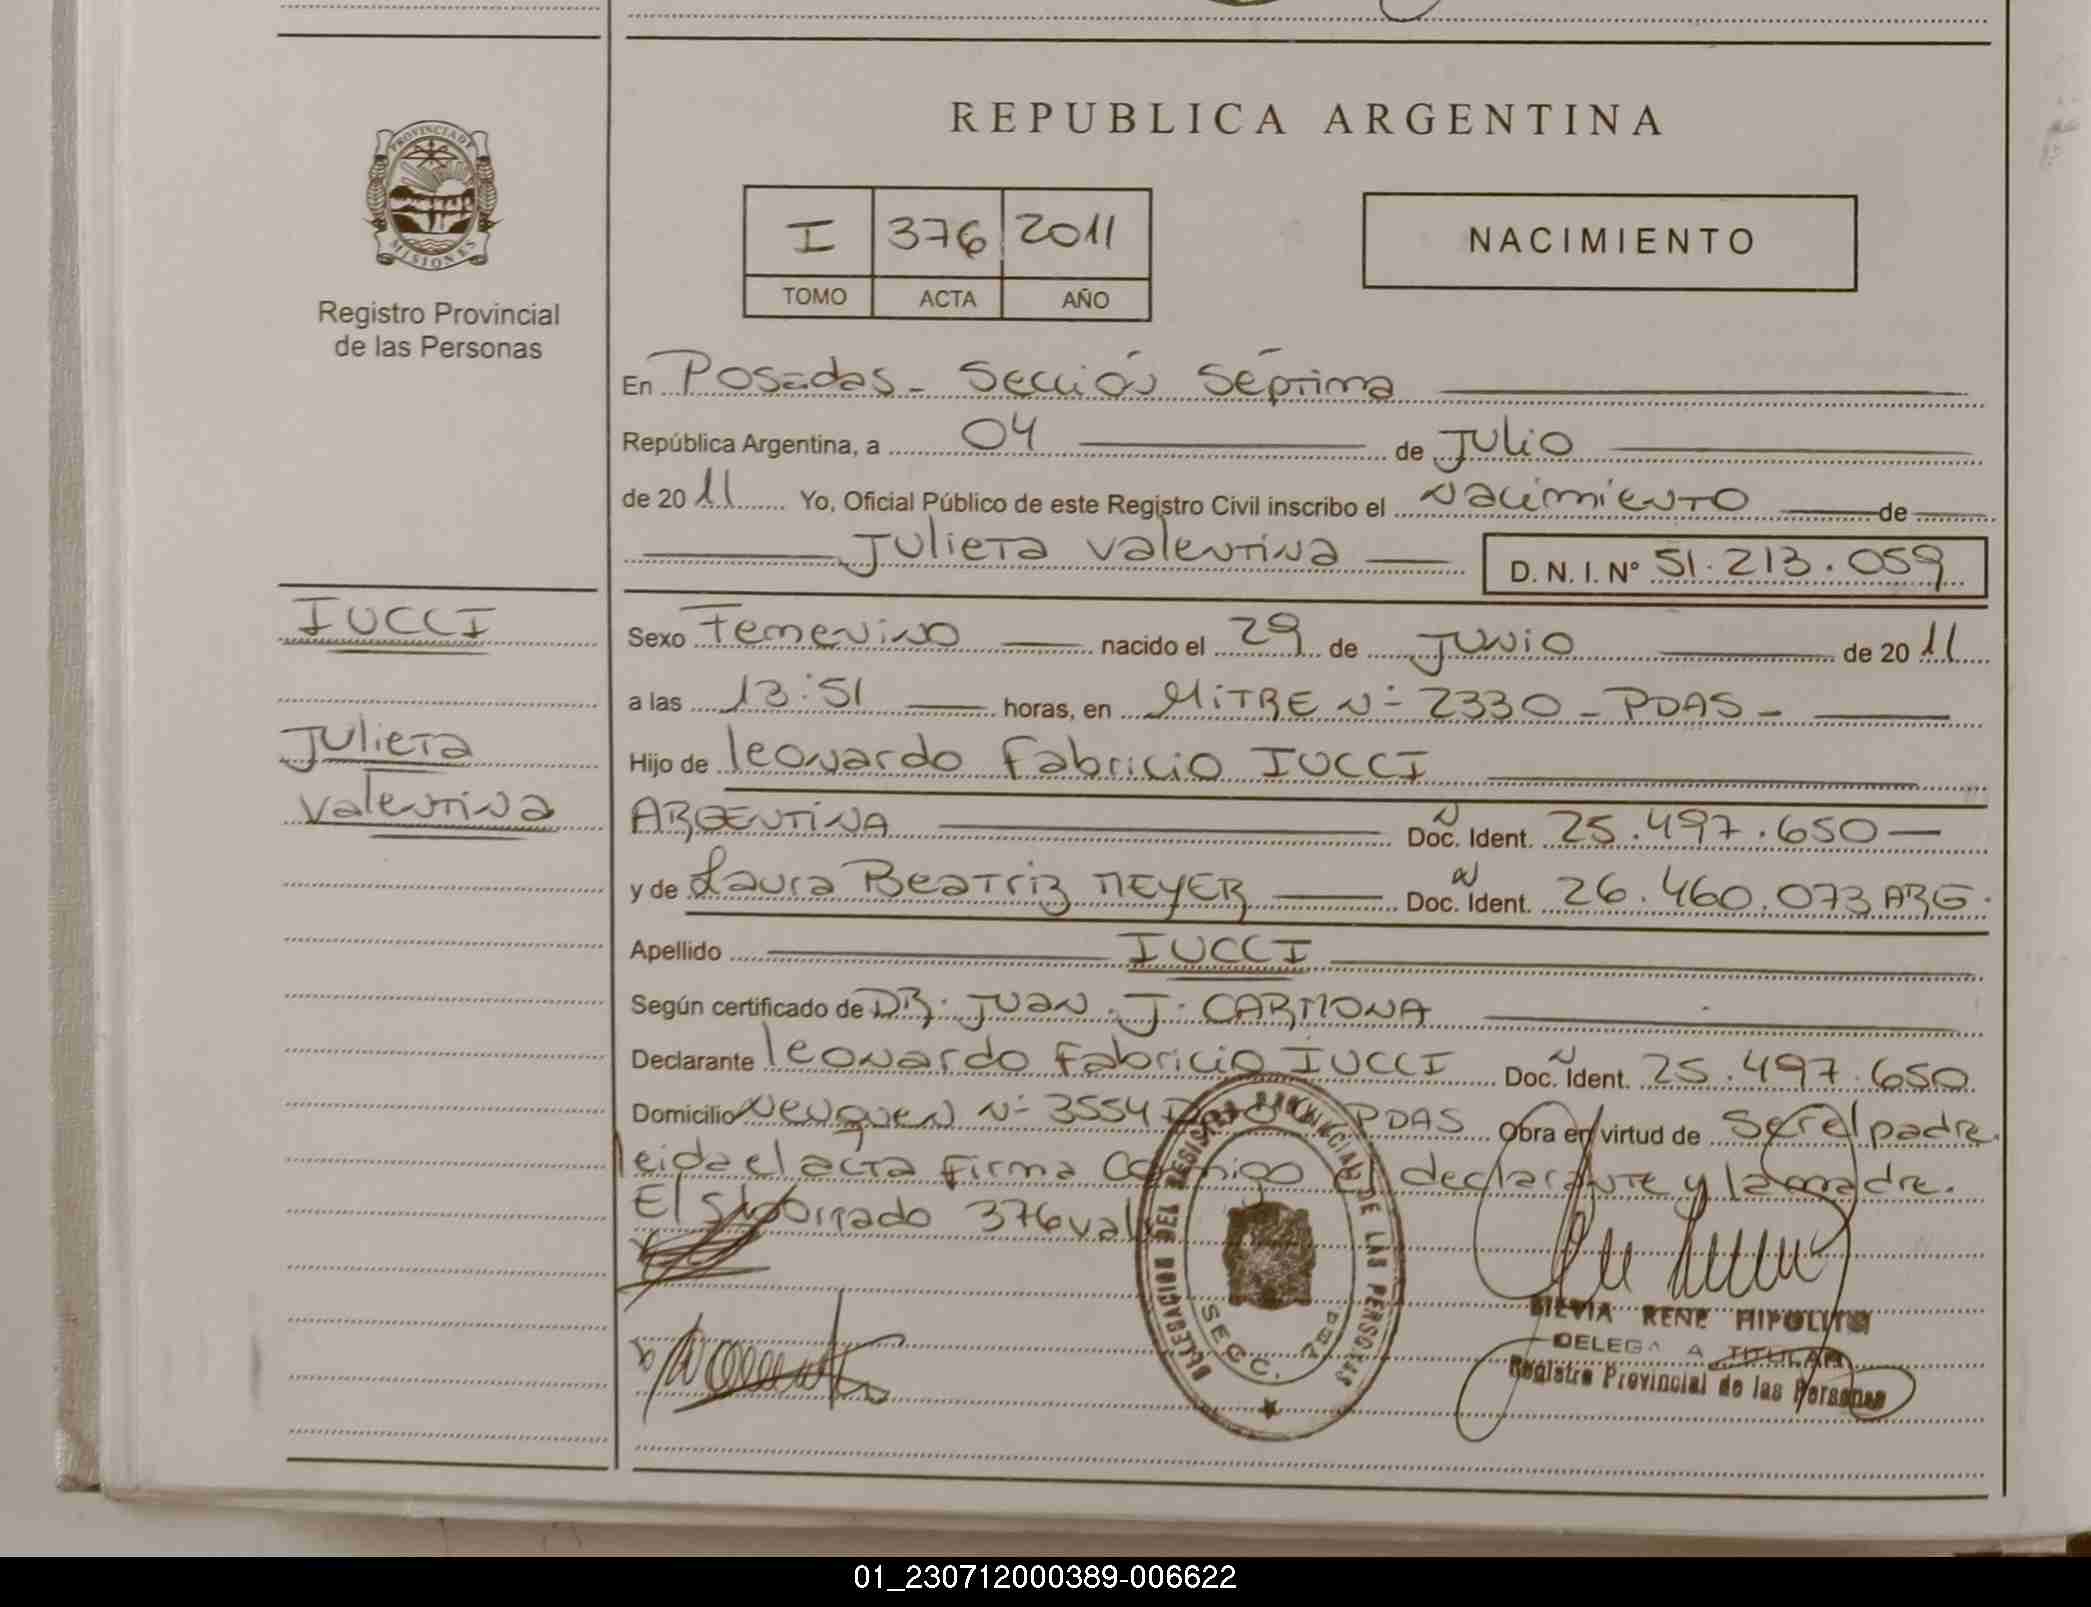 REPUBLICA ARGENTINA
PROVINCIA DE
MISIONES
Registro Provincial
de las Personas
I 376 2011
TOMO ACTA AÑO
NACIMIENTO
En Posadas - Sección Séptima
República Argentina, a 04 de Julio
de 2011 Yo, Oficial Público de este Registro Civil inscribo el Nacimiento de
Julieta Valentina D. N. I. Nº 51.213.059
IUCCI
Julieta
Valentina
Sexo Femenino nacido el 29 de Junio de 2011
a las 13:51 horas, en MiTRE Nº 2330 - PDAS -
Hijo de Leonardo Fabricio IUCCI
ARGENTINA Doc. Ident. 25.497.650
y de Laura Beatriz MEYER Doc. Ident. 26.460.073 ARG.
Apellido IUCCI
Según certificado de DR. JUAN. J. CARMONA
Declarante Leonardo Fabricio IUCCI Doc. Ident. 25.497.650
Domicilio Neuquen Nº 3554 PDAS Obra en virtud de Ser el padre.
leida el acta firma Conmigo el declarante y la madre.
El S/borrado 376 vale
DELEGACION DEL REGISTRO PROVINCIAL DE LAS PERSONAS
SECC.
SILVIA RENE HIPOLITO
DELEGADA TITULAR
Registro Provincial de las Personas
01_230712000389-006622